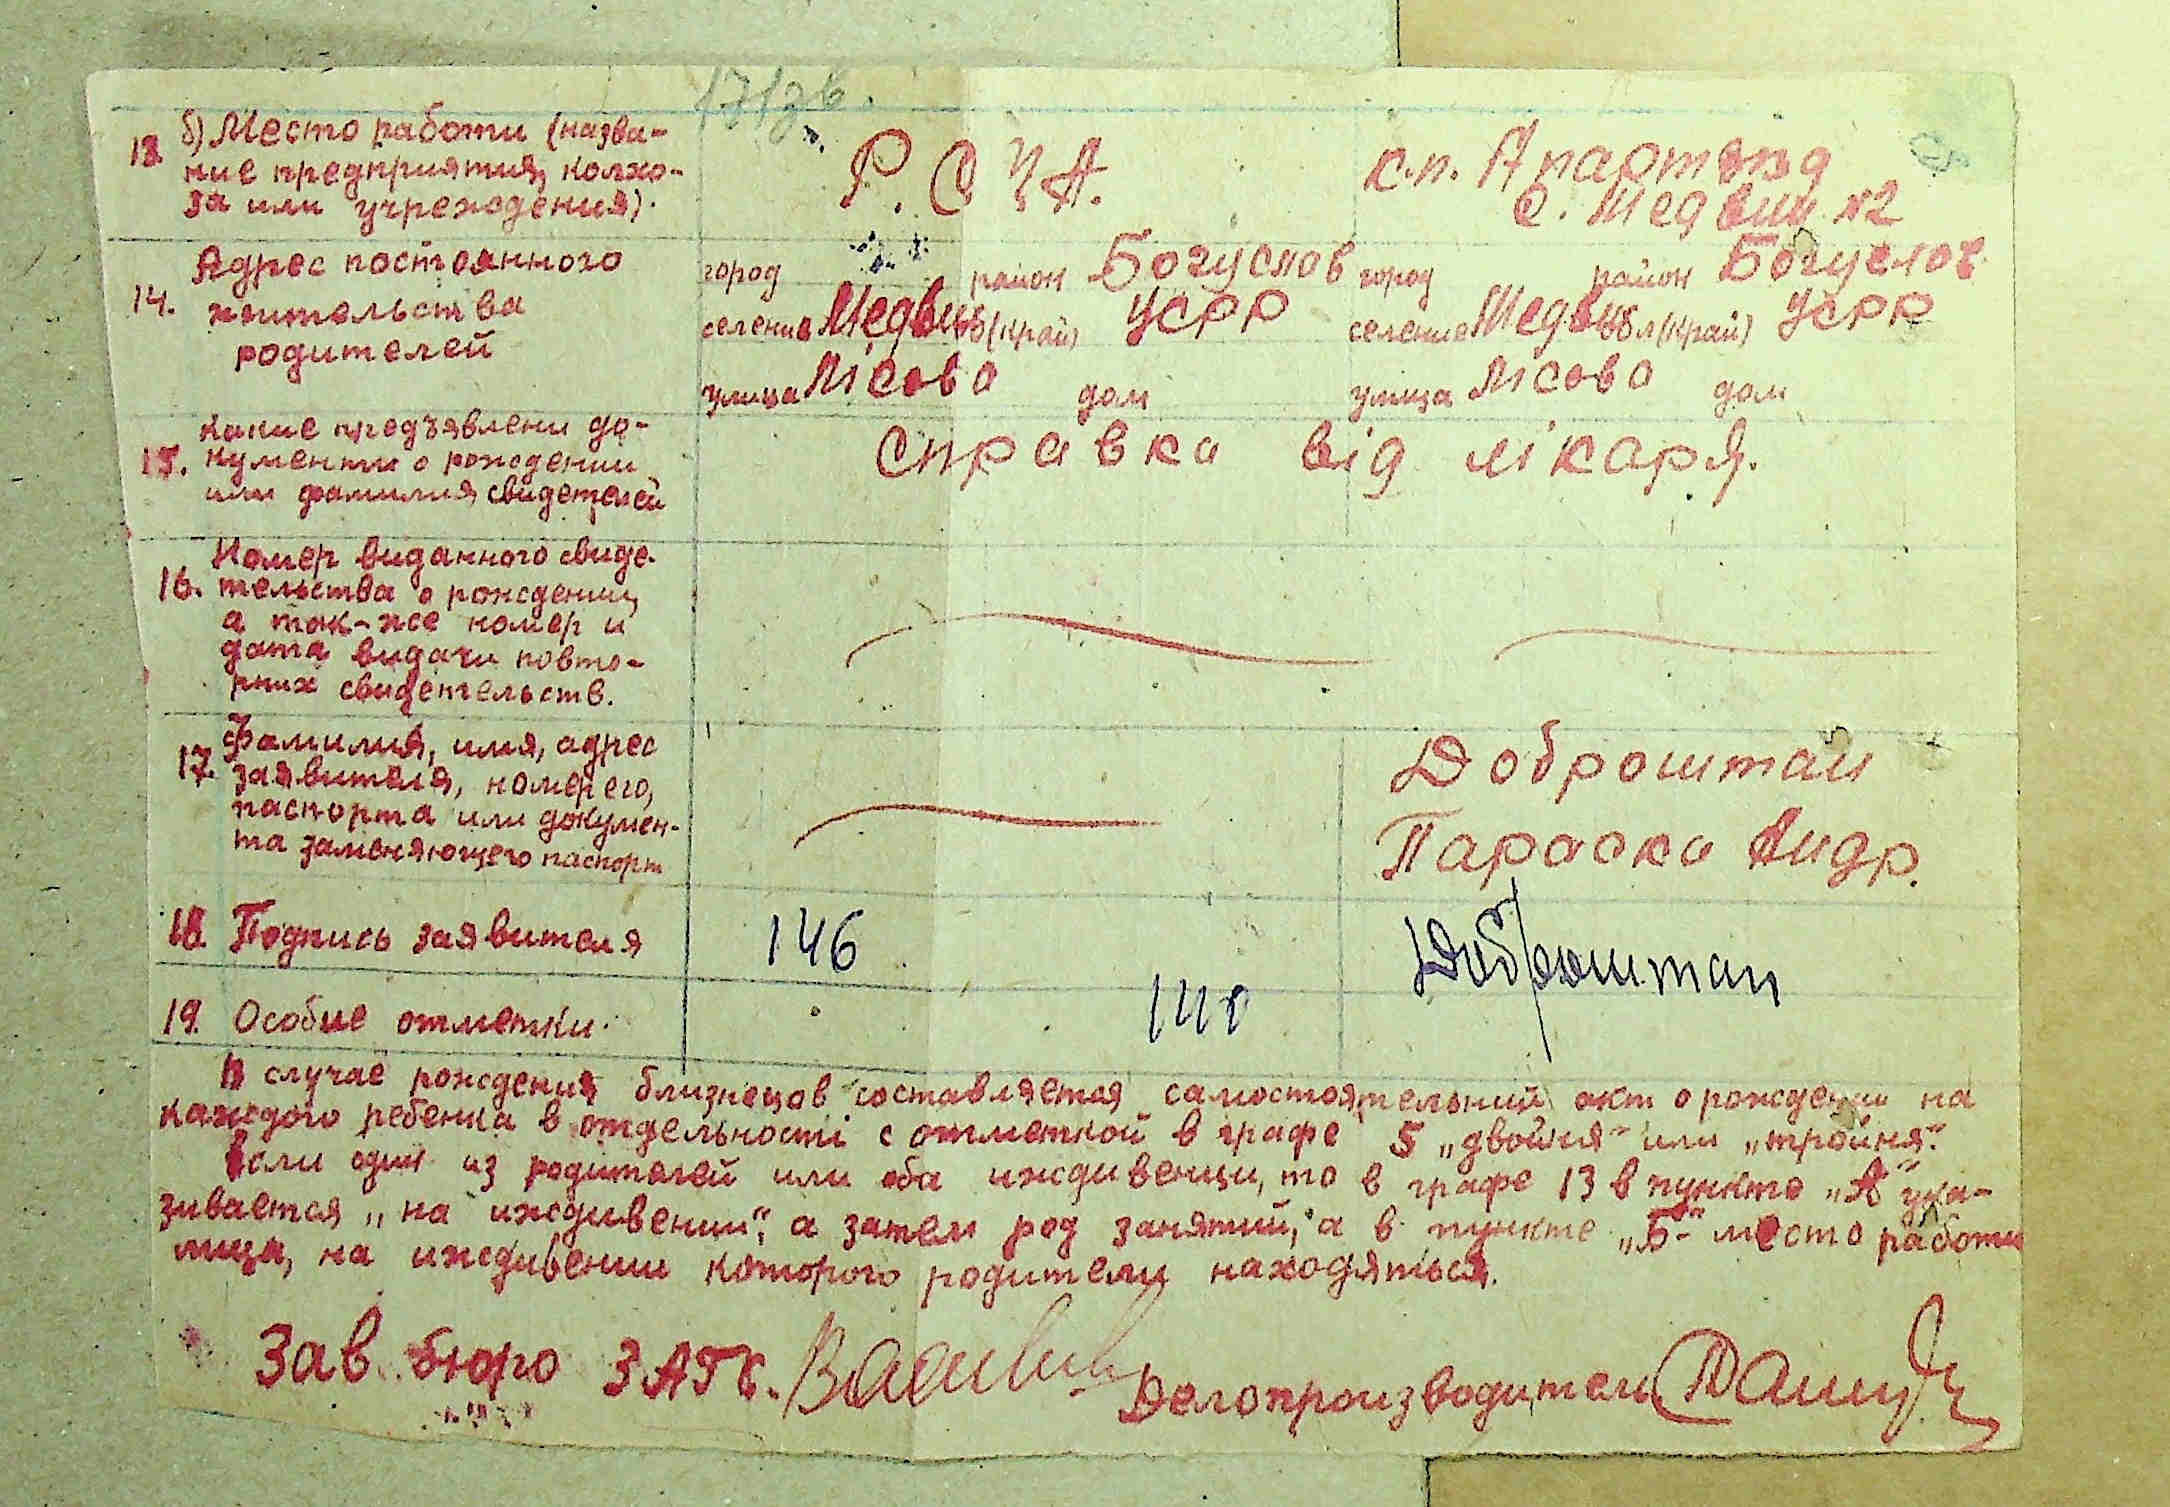 171зв.
13. б) Место работи (назва-
ние предприятия, колхо-
за или учреждения).
Р. С Ч А.
к.п. 
с. Медвин №2
14. Адрес постоянного
жительства
родителей
город район Богуслов город район Богуслов
селение Медвин (край) УСРР селение Медвин обл (край) УСРР
улица Лісова дом улица Лісова дом
15. Какие предъявлени до-
кументи о рождении
или фамилия свидетелей
Справка від лікаря.
16. Номер виданного свиде-
тельства о рождении,
а так-же номер и
дата видачи повто-
рних свидетельств.
17. Фамилия, имя, адрес
заявителя, номер его,
паспорта или докумен-
та заменяющего паспорт
Доброштан
Параска Андр.
18. Подпись заявителя
146
Доброштан
19. Особие отметки.
В случае рождения близнецов составляется самостоятельний акт о рождении на
каждого ребенка в отдельності с отметкой в графе 5 „двойня" или „тройня".
Если один из родителей или оба иждивенци, то в графе 13 в пункте „А" ука-
зивается „на иждивении", а затем род занятий, а в пункте „Б"- место работи
лица, на иждивении которого родители находяться.
Зав. бюро ЗАГС. Делопроизводитель